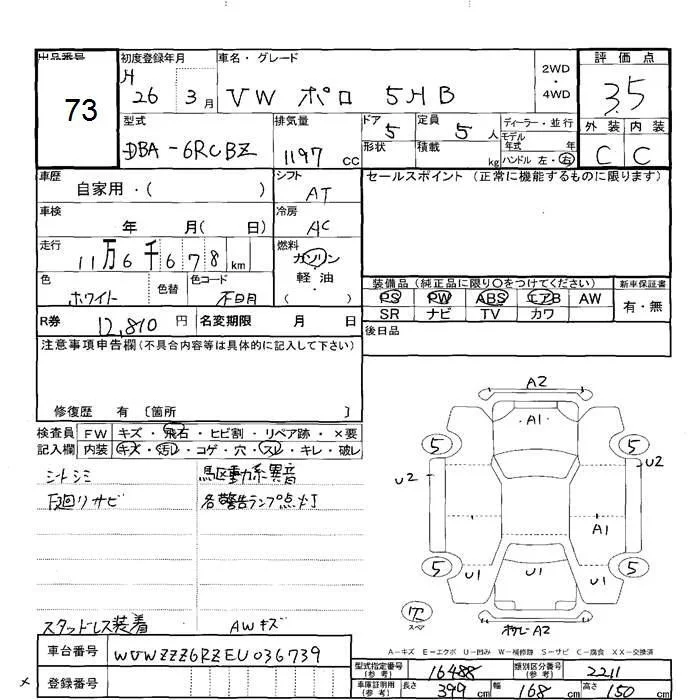 出品番号
73
初度登録年月
H 26 3 月
車名・グレード
VW ポロ 5HB
2WD
・
4WD
評価点
3.5
外装 内装
C C
型式
DBA-6RCBZ
排気量
1197 cc
ドア 5
形状
定員 5 人
積載 kg
ディーラー・並行
モデル年式 年
ハンドル 左・右
車歴
自家用・( )
シフト
AT
セールスポイント (正常に機能するものに限ります)
車検
年 月( 日)
冷房
AC
走行
11万6千678 km
燃料
ガソリン
・
軽油
・
( )
色
ホワイト
色替
色コード
不明
装備品(純正品に限り〇をつけてください)
新車保証書
PS PW ABS エアB AW
SR ナビ TV カワ
有・無
R券 12,810 円
名変期限 月 日
後日品
注意事項申告欄(不具合内容等は具体的に記入して下さい)
修復歴 有 〔箇所 〕
検査員
記入欄
FW キズ・飛石・ヒビ割・リペア跡・×要
内装 キズ・汚れ・コゲ・穴・スレ・キレ・破レ
シートシミ
下廻りサビ
駆動系異音
各警告ランプ点灯
スタッドレス装着
AWキズ
A2
A1
5 5
U2 U2
A1
5 5
U1 U1 U1
スペア
A2
A-キズ E-エクボ U-凹み W-補修跡 S-サビ C-腐食 XX-交換済
車台番号 WVWZZZ6RZEU036739
登録番号
型式指定番号
(参考)
16488
類別区分番号
(参考)
2211
車庫証明用
(参考)
長さ 399 cm 幅 168 cm 高さ 150 cm